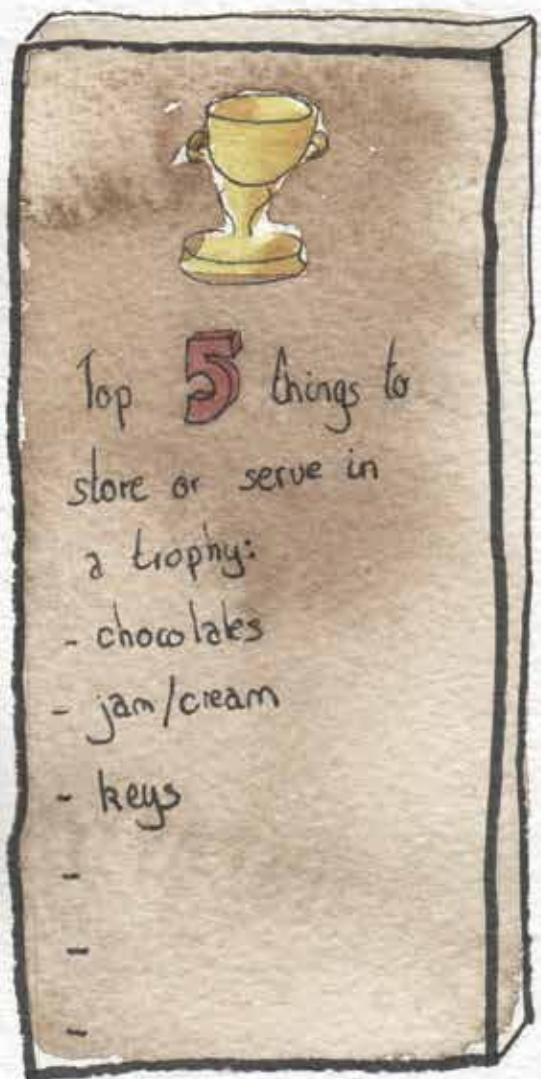 Top 5 things to
store or serve in
a trophy:
- chocolates
- jam/cream
- keys
-
-
-